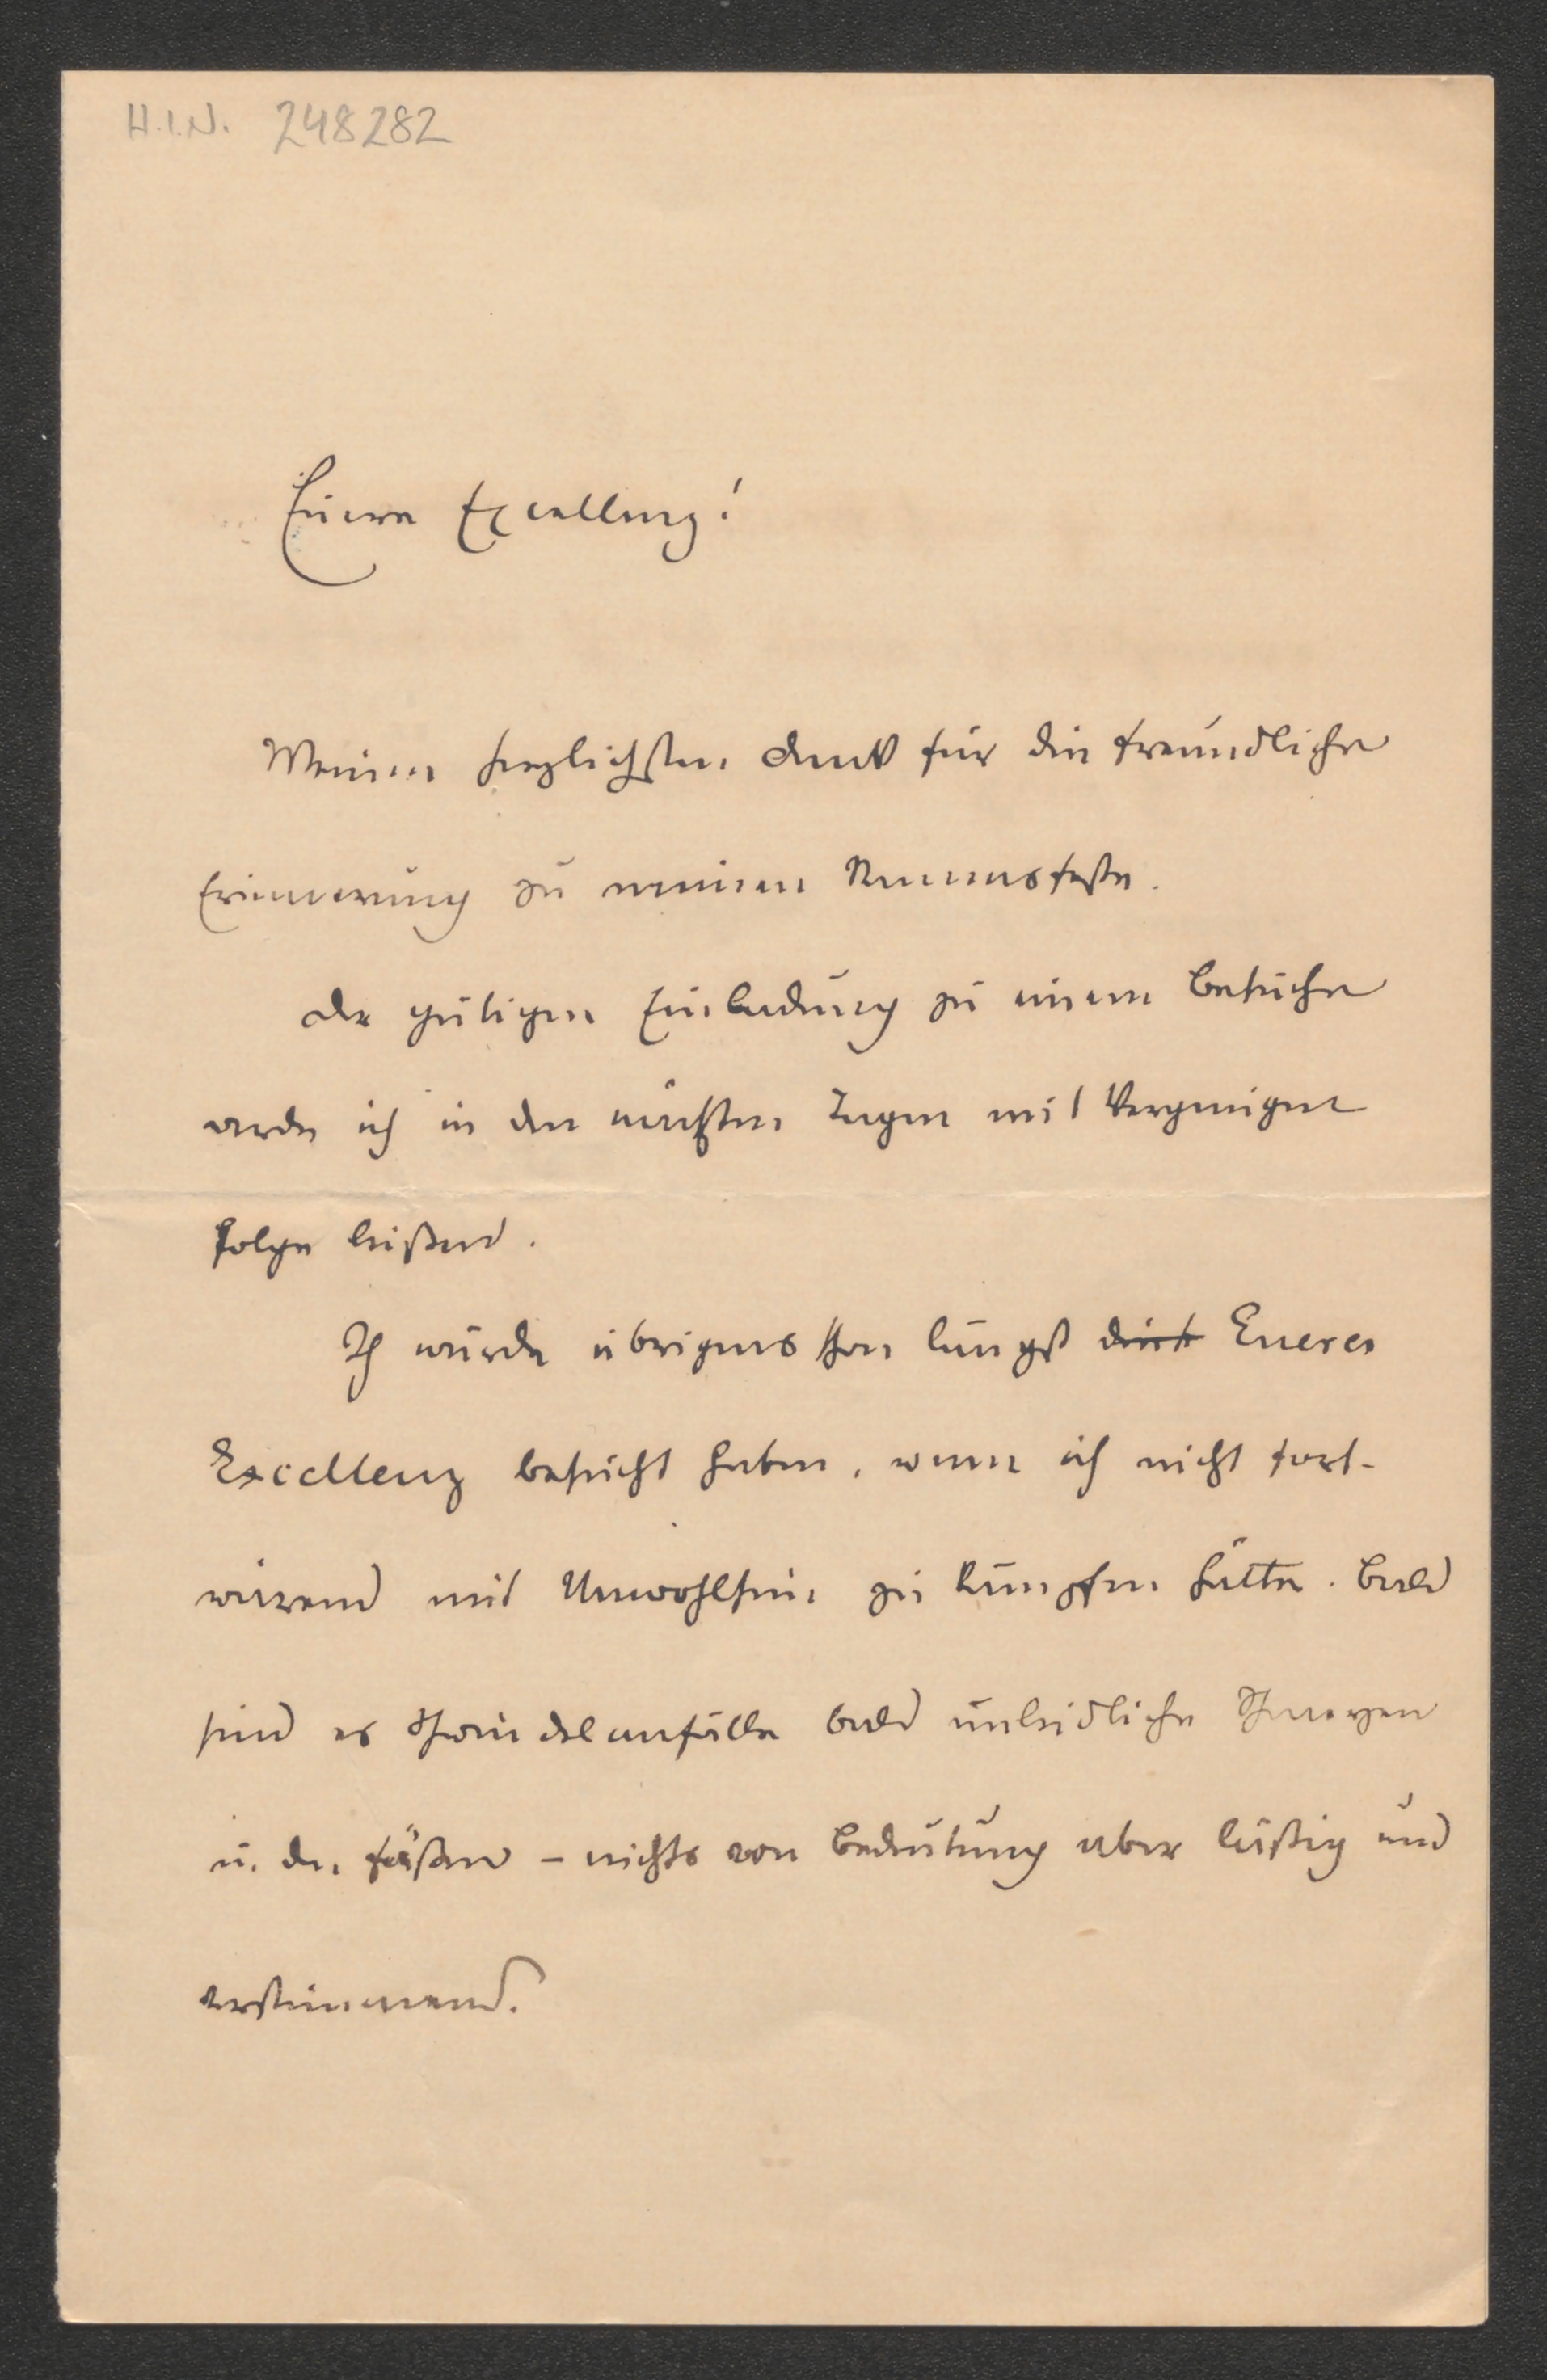 H.I.N. 248282
Euere Excellenz!
Meinen herzlichsten Dank für die freundliche
Erinnerung zu meinem Namensfeste.
Der gütigen Einladung zu einem Besuche
werde ich in den nächsten Tagen mit Vergnügen
Folge leisten.
Ich würde übrigens schon längst Euere
Excellenz besucht haben, wenn ich nicht fort-
wärend mit Unwohlsein zu kämpfen hätte. Bald
sind es Schwindelanfälle bald unleidliche Schmerzen
in den Füßen – nichts von Bedeutung aber lästig und
verstimmend.